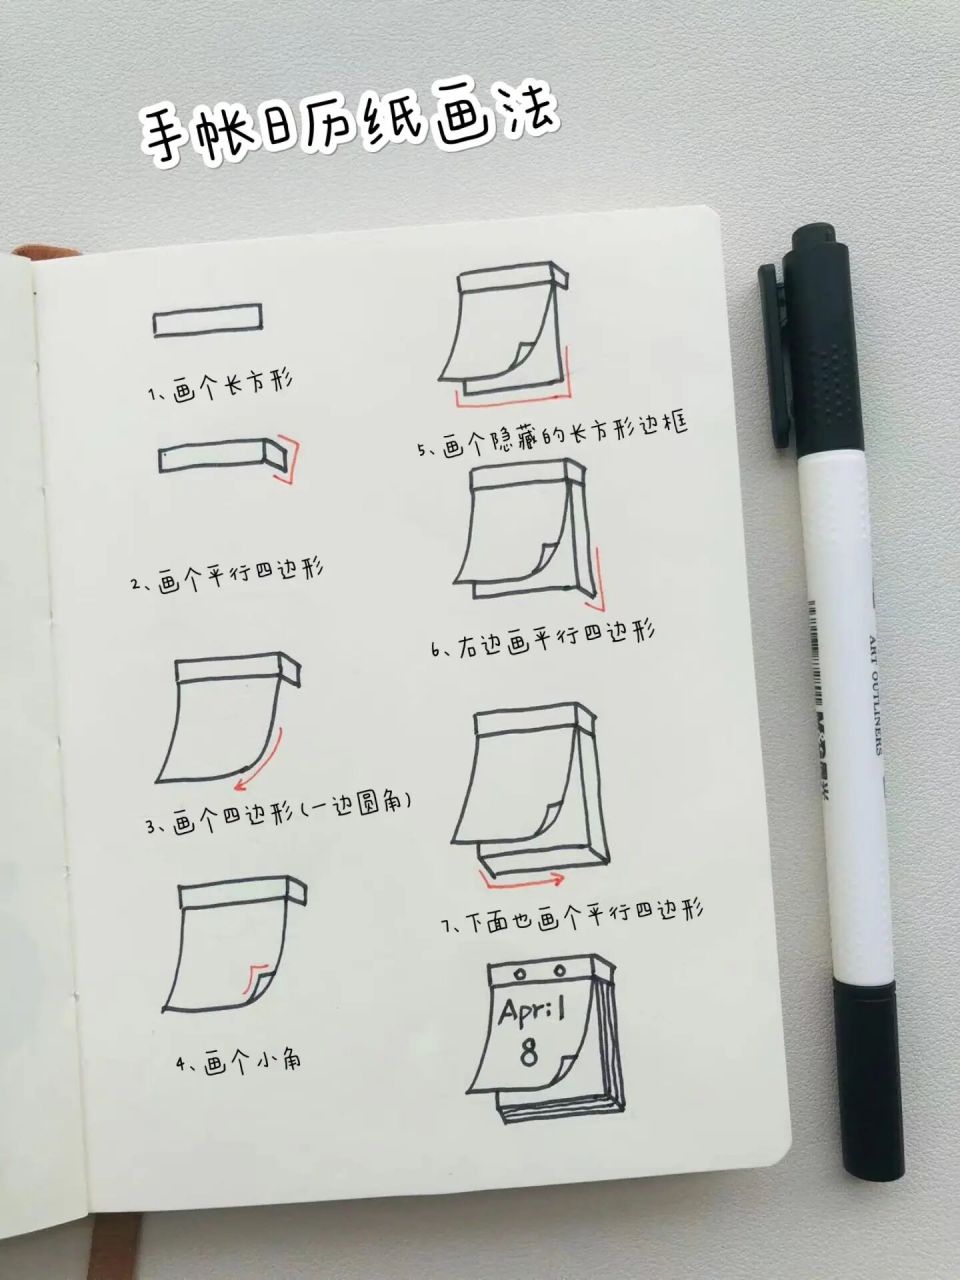 手帐日历纸画法
1、画个长方形
2、画个平行四边形
3、画个四边形(一边圆角)
4、画个小角
5、画个隐藏的长方形边框
6、右边画平行四边形
7、下面也画个平行四边形
April
8
ART OUTLINERS
M&G晨光